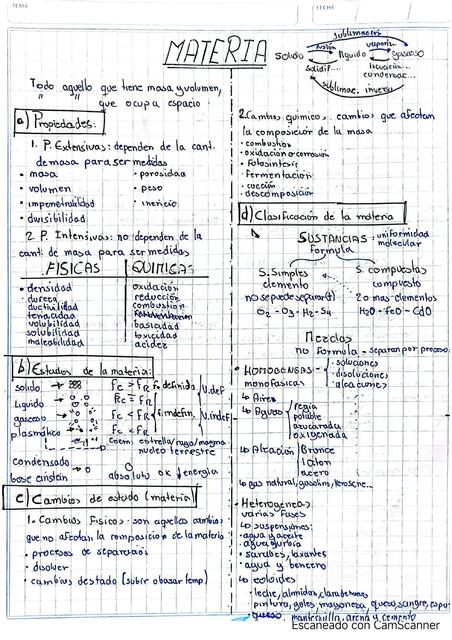 TEMA
FECHA
MATERIA
Todo aquello que tiene masa y volumen,
" " que ocupa espacio
a) Propiedades:
1. P. Extensivas: dependen de la cant.
de masa para ser medidas
• masa • porosidad
• volumen • peso
• impenetrabilidad • inercia
• divisibilidad
2. P. Intensivas: no dependen de la
cant. de masa para ser medidas
FISICAS QUIMICAS
• densidad oxidación
• dureza reducción
ductibilidad combustion
tenacidad
volubilidad basicidad
solubilidad toxicidad
maleabilidad acidez
b) Estados de la materia:
solido Fc > FR F. definida V. def
liquido Fc = FR
gaseoso Fc < FR F. indefin. V. indef
plasmático Fc < FR
estrella/rayo/magma
nucleo terrestre
Condensado
bose einstein absoluto 0K ↓energia
c) Cambios de estado (materia)
1. Cambios Fisicos: son aquellos cambios
que no afectan la composicion de la materia
• procesos de separación
• disolver
• cambios de stado (subir o bajar temp)
sublimación
fusión vaporiz.
Solido liquido gaseoso
solidif... licuación...
condensac...
sublimac. inversa
2. Cambios quimicos: cambios que afectan
la composición de la masa
• combustion
• oxidación o corrosión
• Fotosintesis
• Fermentación
• cocción
• descomposición
d) Clasificación de la materia
SUSTANCIAS: uniformidad
molecular
Formula
S. Simples S. compuestas
elemento compuesto
no se puede separar(t) 2 o mas elementos
O2 - O3 - H2 - S4 H2O - FeO - CdO
Mezclas
no Formula - separan por proceso
• HOMOGENEAS • soluciones
monofasicas • disoluciones
• aleaciones
↳ Aire
↳ Aguas regia
potable
azucarada
oxigenada
↳ Aleación Bronce
laton
acero
↳ Gas natural, gasolina, kerosene...
• Heterogeneas
varias fases
↳ suspensiones:
• agua y aceite
• agua turbia
• jarabes, laxantes
• agua y benceno
↳ coloides
• leche, almidon, clara de huevo
pintura, geles, mayonesa, queso, sangre, espu
• queso, mantequilla, arena y cemento
Escaneado con CamScanner